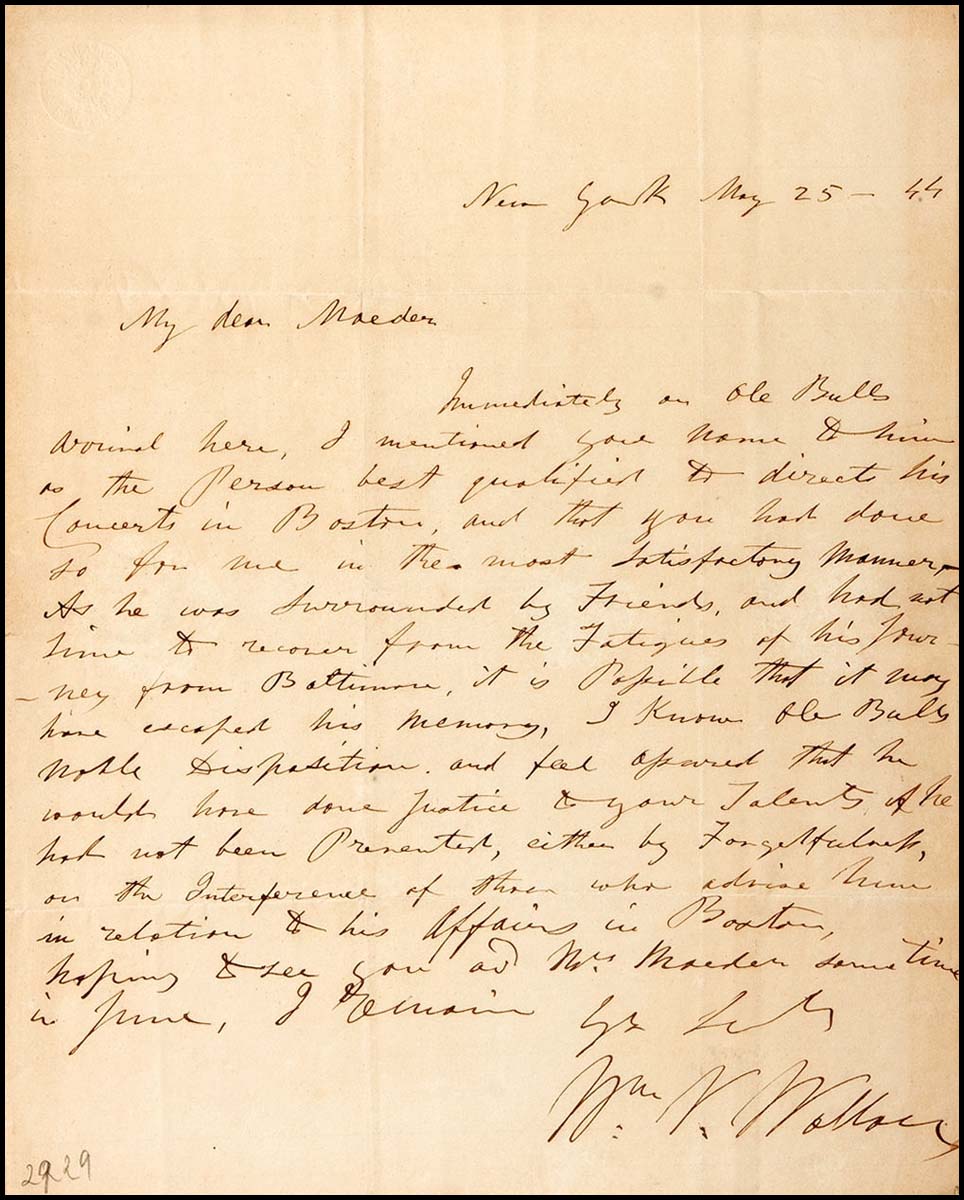 New York May 25 – 44
My dear Maeder
Immediately on Ole Bulls
arrival here, I mentioned your name to him
as the Person best qualified to directs his
Concerts in Boston, and that you had done
so for me in the most satisfactory Manner,–
As he was surrounded by Friends, and had not
time to recover from the Fatigues of his Jour-
-ney from Baltimore, it is Possible that it may
have escaped his Memory, I Know Ole Bulls
Noble Disposition. and feel assured that he
would have done Justice to your Talents if he
had not been Prevented, either by Forgetfulness,
or the Interference of those who advise him
in relation to his Affairs in Boston,
hoping to see you and Mrs Maeder some time
in June, I Remain
Wm V. Wallace
29 29